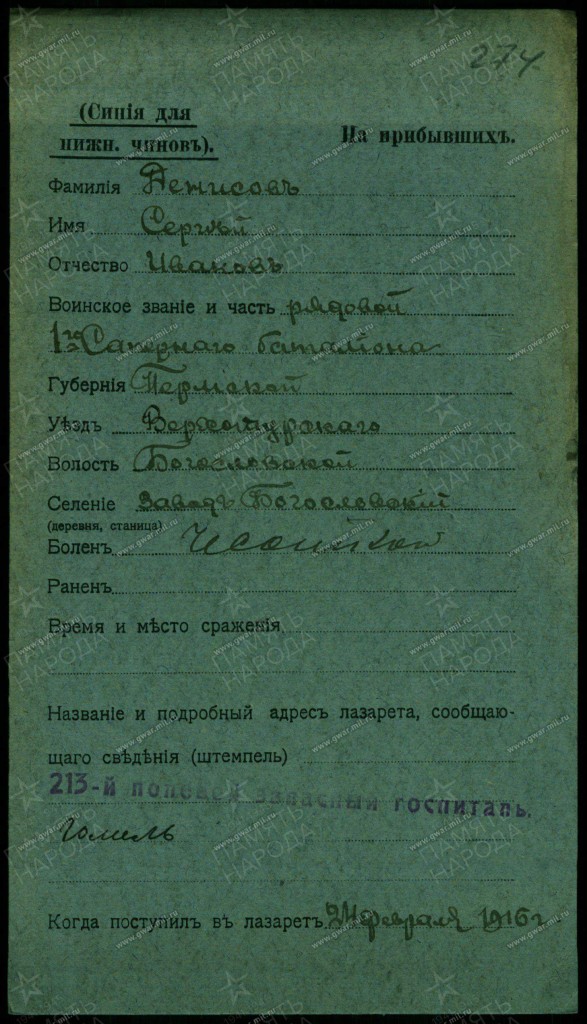 274
(Синія для
нижн. чиновъ).
На прибывшихъ.
Фамилія Денисовъ
Имя Сергѣй
Отчество Ивановъ
Воинское званіе и часть рядовой
1го Сапернаго баталіона
Губернія Пермской
Уѣздъ Верхотурскаго
Волость Богословской
Селеніе заводъ Богословскій
(деревня, станица)
Боленъ Чесоткой
Раненъ
Время и мѣсто сраженія
Названіе и подробный адресъ лазарета, сообщаю-
щаго свѣдѣнія (штемпель)
213-й полевой запасный госпиталь.
Гомель
Когда поступилъ въ лазаретъ 24 февраля 1916 г